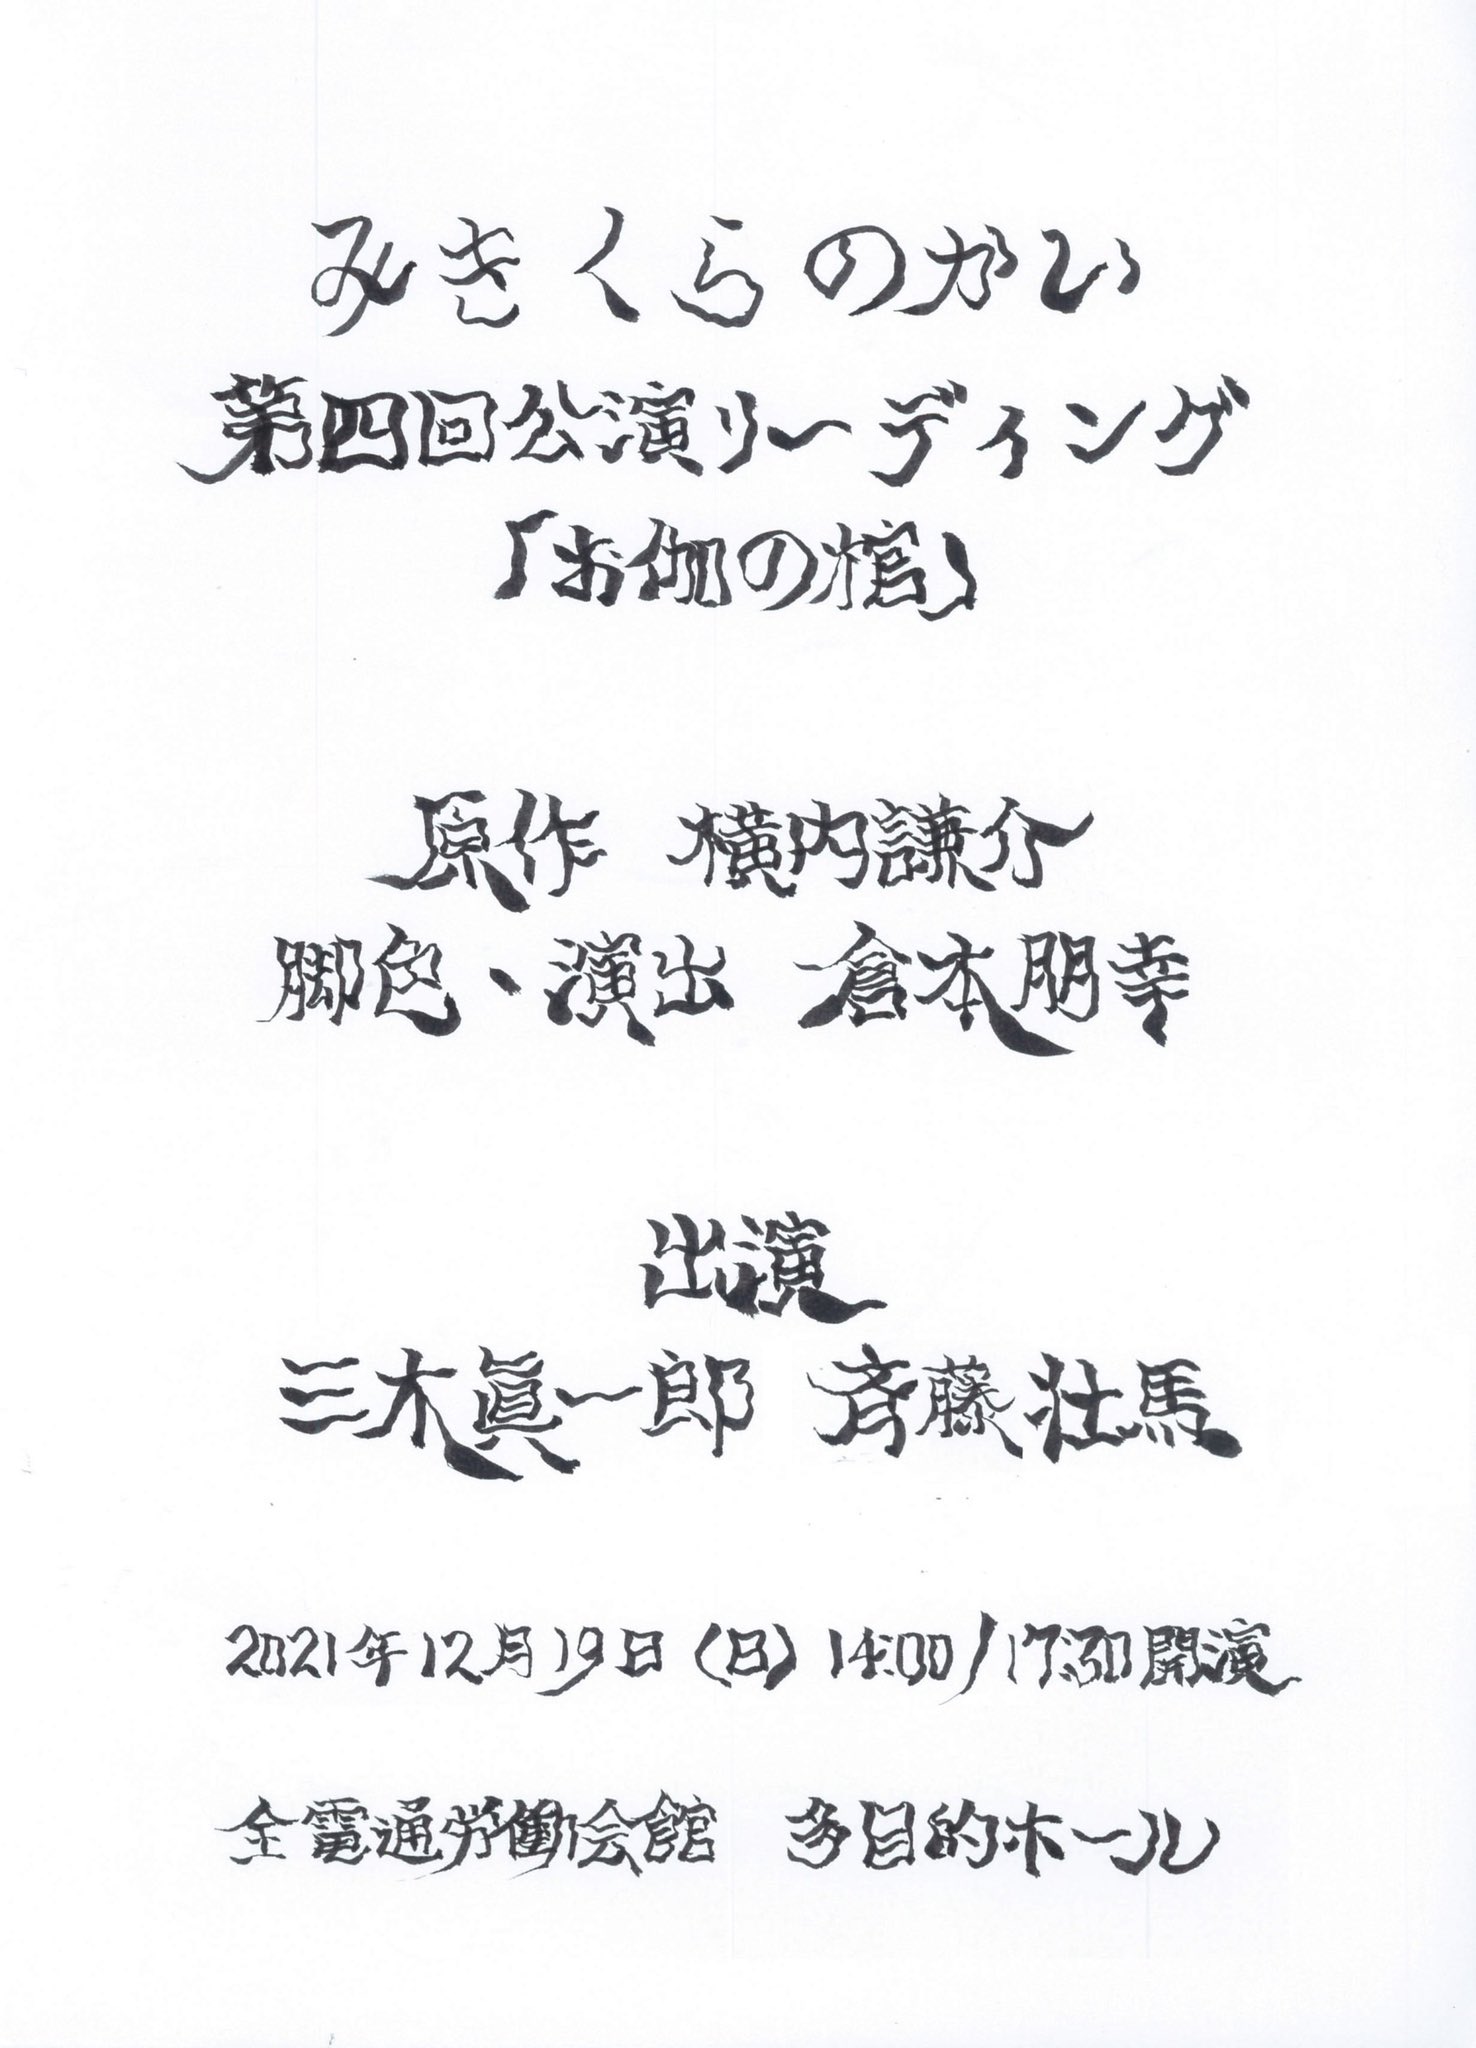 みきくらのかい
第四回公演リーディング
「お伽の棺」
原作 横内謙介
脚色・演出 倉本朋幸
出演
三木眞一郎 斉藤壮馬
2021年12月19日（日）14:00/17:30開演
全電通労働会館 多目的ホール